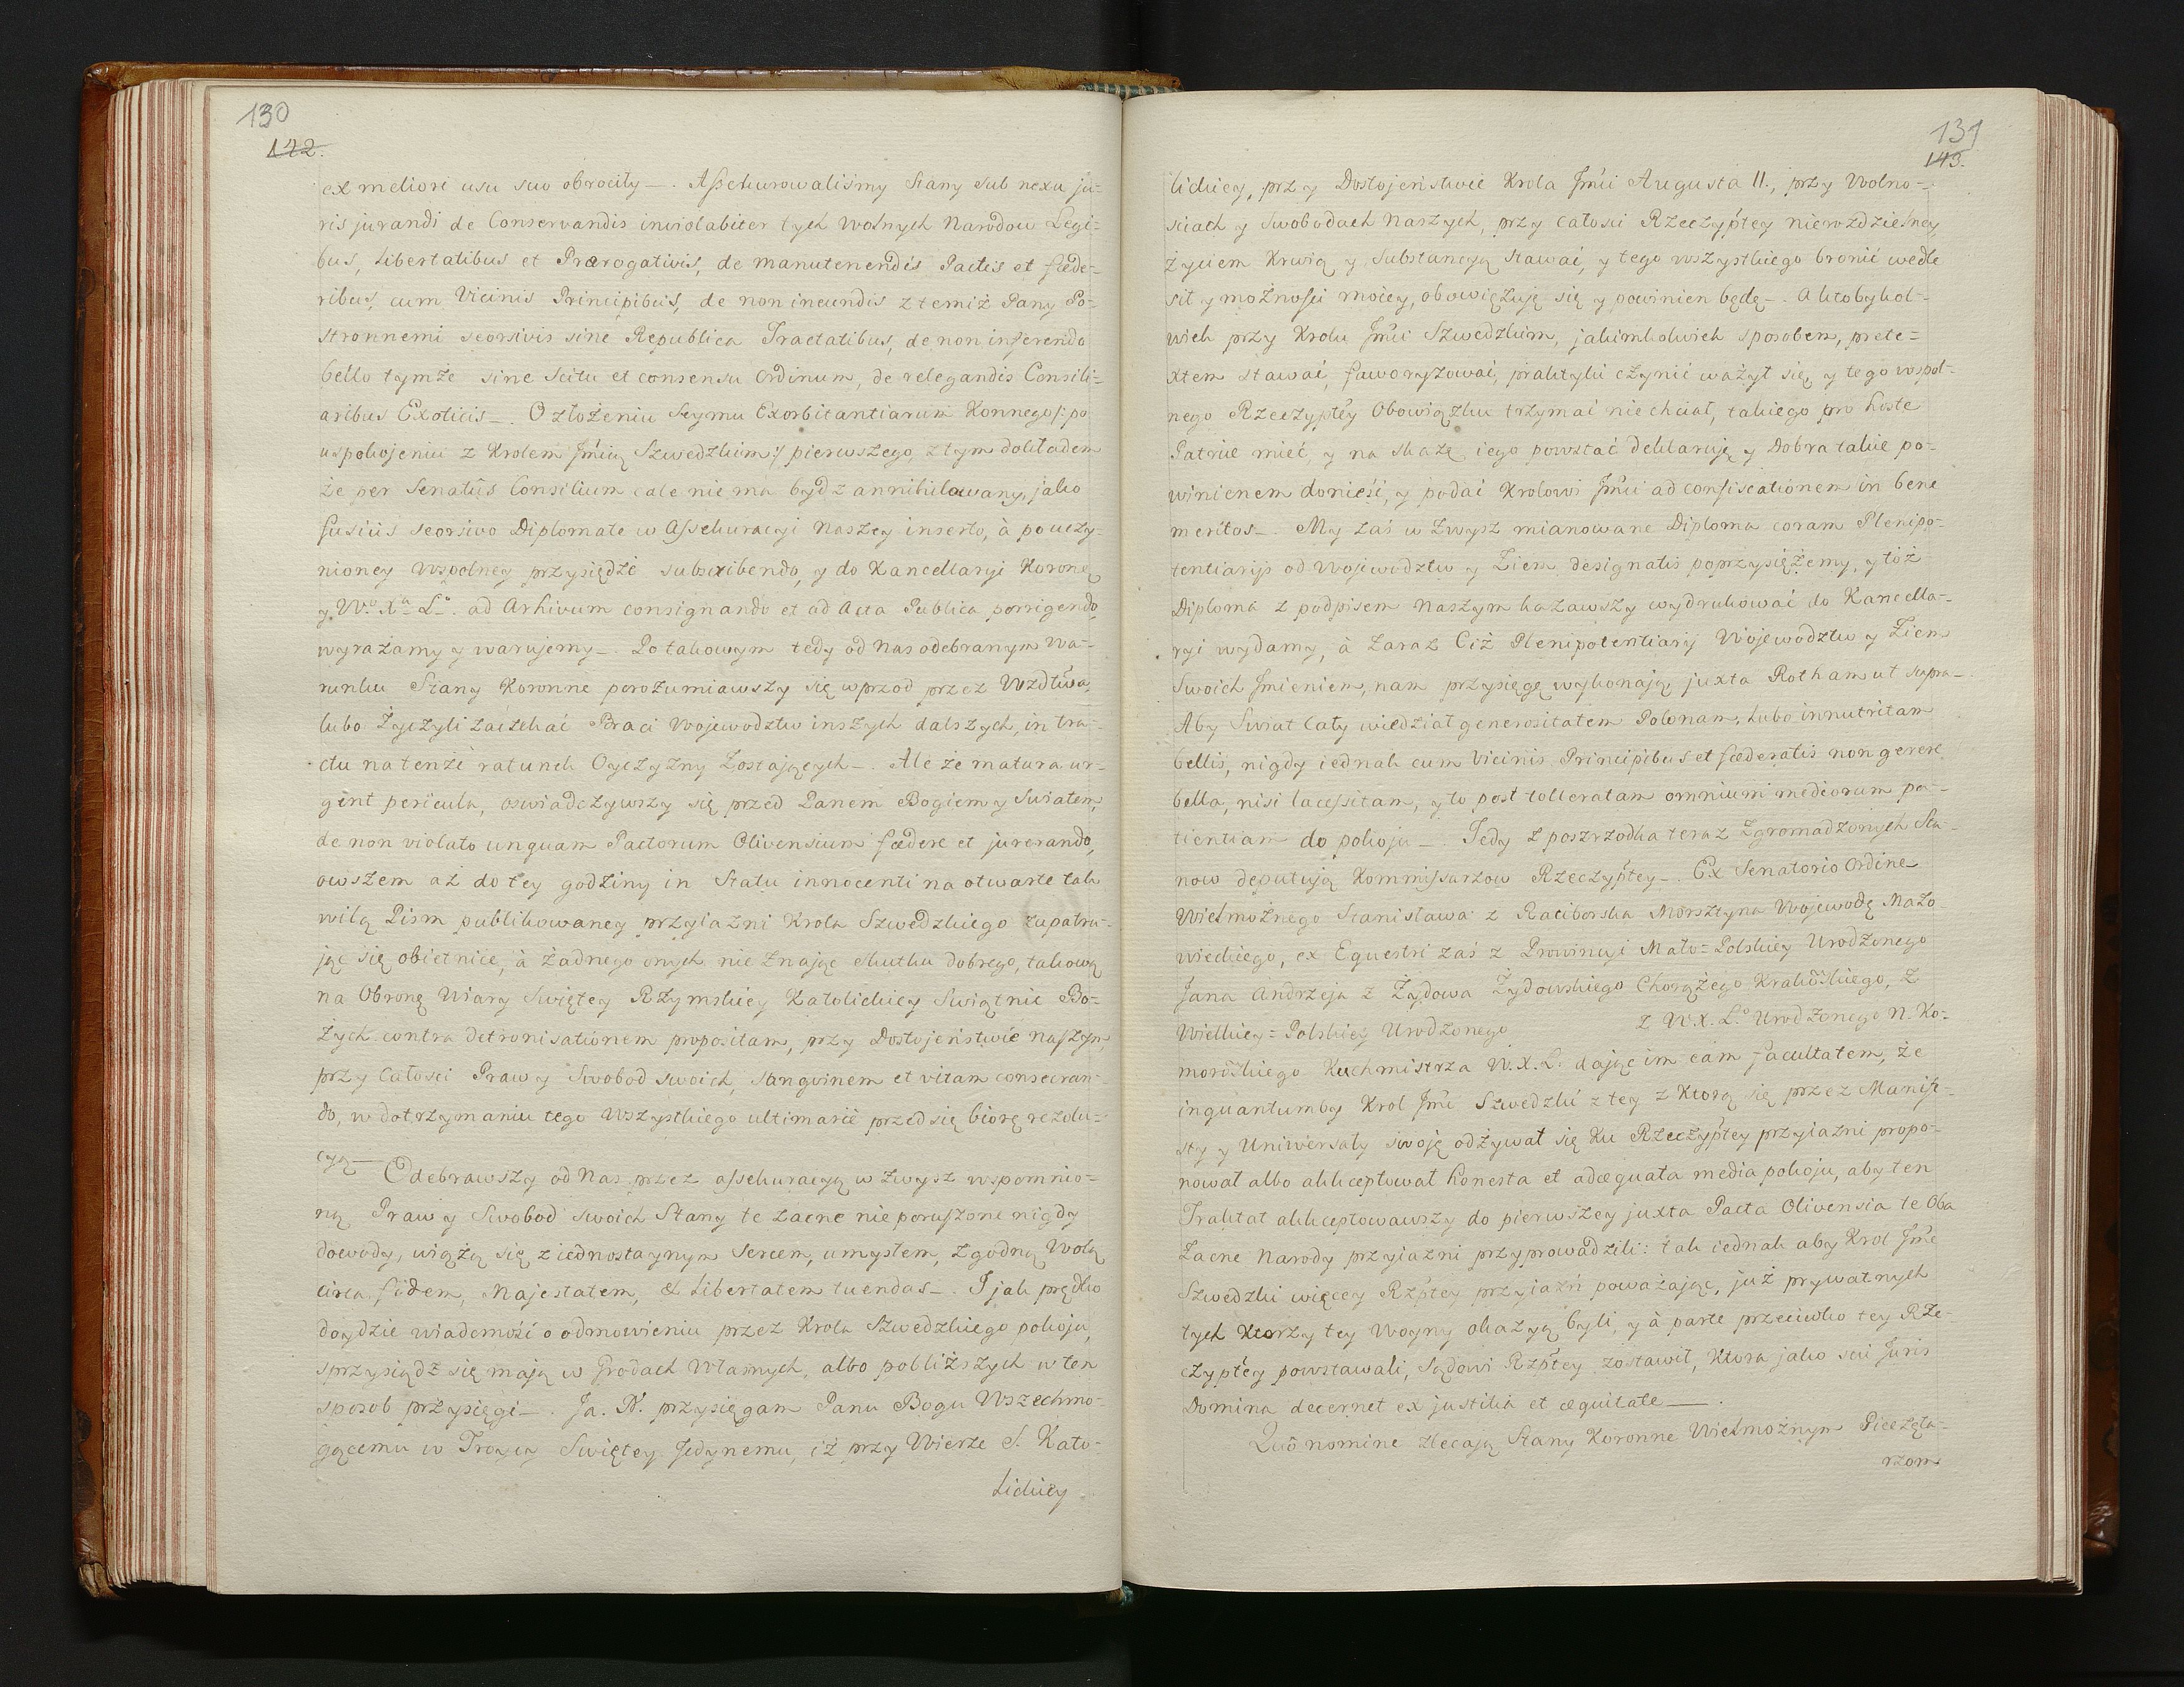 130
142.
ex meliori usu suo obrociły —. Assekurowaliśmy Stany sub nexu ju=
ris jurandi de Conservandis inviolabiter tych Wolnych Narodow Legi=
bus, Libertatibus et Prærogativis, de manutenendis Pactis et fæde=
ribus, cum Vicinis Principibus, de non ineundis z temiż Pany Po=
stronnemi seorsivis sine Republica Tractatibus, de non inferendo
bello tymże sine Scitu et consensu Ordinum, de relegandis Consili=
aribus Exoticis —. O złożeniu Seymu Exorbitantiarum Konnego /: po
uspokojeniu z Krolem Jmcią Szwedzkim :/ pierwszego, z tym dokładem
że per Senatûs Consilium cale nie ma bydz annihilowany, jako
fusiûs seorsivo Diplomate w Assekuracyi Naszey inserto, à po uczy=
nioney Wspolney przysiędze subscribendo, y do Kancellaryi Koronney
y W.º Xª L.º ad Arhivum consignando et ad Acta Publica porrigendo,
wyrażamy y warujemy —. Po takowym tedy od Nas odebranym Wa=
runku Stany Koronne porozumiawszy się wprzod przez Wzdtwa,
lubo życzyli zaczekać Braci Wojewodztw inszych dalszych, in tra=
ctu na tenże ratunek Oyczyzny Zostających —. Ale że matura ur=
gent pericula, oswiadczywszy się przed Panem Bogiem y Swiatem,
de non violato unquam Pactorum Olivensium fædere et jurerando,
owszem aż do tey godziny in Statu innocenti na otwarte tak
wilą Pism publikowaney przyiazni Krola Szwedzkiego zapatru=
jąc się obietnice, à żadnego onych nie znając skutku dobrego, takową
na Obronę Wiary Swiętey Rzymskiey Katolickiey Swiątnic Bo=
żych contra detronisationem propositam, przy Dostojeństwie naszym,
przy Całosci Praw y Swobod swoich, sangvinem et vitam consecran=
do, w dotrzymaniu tego Wszystkiego ultimarie przedsię biorę rezolu=
cyą —
Odebrawszy od Nas przez assekuracyą w zwysz wspomnio=
ną Praw y Swobod swoich Stany te zacne nie poruszone nigdy
dowody, wiążą się z iednostaynym Sercem, umysłem, zgodną Wolą
circa fidem, Majestatem, & Libertatem tuendas —. I jak prędko
doydzie wiadomość o odmowieniu przez Krola Szwedzkiego pokoju,
sprzysiądz się mają w Grodach Własnych, albo pobliższych w ten
sposob przysięgi —. Ja. N. przysięgam Panu Bogu Wszechmo=
gącemu w Troycy Swiętey Jedynemu, iż przy Wierze S. Kato=
lickiey
131
143.
lickiey, przy Dostojeństwie Krola Jmći Augusta II., przy Wolno=
sciach y Swobodach Naszych, przy całosci Rzeczyptey nierozdzielney
życiem Krwią y Substancyą stawać, y tego wszystkiego bronić wedle
sił y możnosci moiey, obowięzuję się y powinien będę —. A ktobykol=
wiek przy Krolu Jmći Szwedzkim, jakimkolwiek sposobem, prete=
xtem stawać, faworyzować, praktyki czynić ważył się, y tego wspol=
nego Rzeczyptey Obowiązku trzymać nie chciał, takiego pro hoste
Patriæ mieć, y na skazę iego powstać deklaruję y Dobra takie po=
winienem donieść, y podać Krolowi Jmći ad confiscationem in bene
meritos —. My zaś w zwysz mianowane Diploma coram Plenipo=
tentiarijs od Wojewodztw y Ziem designatis poprzysięzemy, y toż
Diploma z podpisem Naszym kazawszy wydrukować do Kancella=
ryi wydamy, à zaraz Ciż Plenipotentiarij Wojewodztw y Ziem
Swoich Jmieniem, nam przysięgę wykonają juxta Rotham ut supra —.
Aby Swiat cały wiedział generositatem Polonam, Lubo innutritam
bellis, nigdy iednak cum Vicinis Principibus et fæderatis non gerere
bella, nisi lacessitam, y to post tolleratam omnium mediorum pa=
tientiam do pokoju —. Tedy z poszrzodka teraz zgromadzonych Sta=
now deputują Kommissarzow Rzeczyptey —. Ex Senatorio Ordine
Wielmożnego Stanisława z Raciborska Morsztyna Wojewodę Mazo
wieckiego, ex Equestri zaś z Prowincyi Mało=Polskiey Urodzonego
Jana Andrzeja z Żydowa Żydowskiego Chorążego Krakōskiego, z
Wielkiey=Polskiey Urodzonego z W.X.L.º Urodzonego N. Ko=
morōskiego Kuchmistrza W.X.L. dając im eam facultatem, że
inquantumby Krol Jmć Szwedzki z tey z Ktorą się przez Manife=
sty y Uniwersały swoję odzywał się Ku Rzeczyptey przyiazni propo=
nował albo akkceptował honesta et adæquata media pokoju, aby ten
Traktat akkceptowawszy do pierwszey juxta Pacta Olivensia te Oba
Zacne Narody przyiazni przyprowadzili: tak iednak aby Krol Jmć
Szwedzki więcey Rzptey przyiaźń poważając, już prywatnych
tych Ktorzy tey Woyny okazyą byli, y à parte przeciwko tey Rze=
czyptey powstawali, Sądowi Rzptey zostawił, Ktora jako sui Juris
Domina decernet ex justitia et æquitate —.
Quō nomine zlecają Stany Koronne Wielmożnym Pieczęta=
rzom